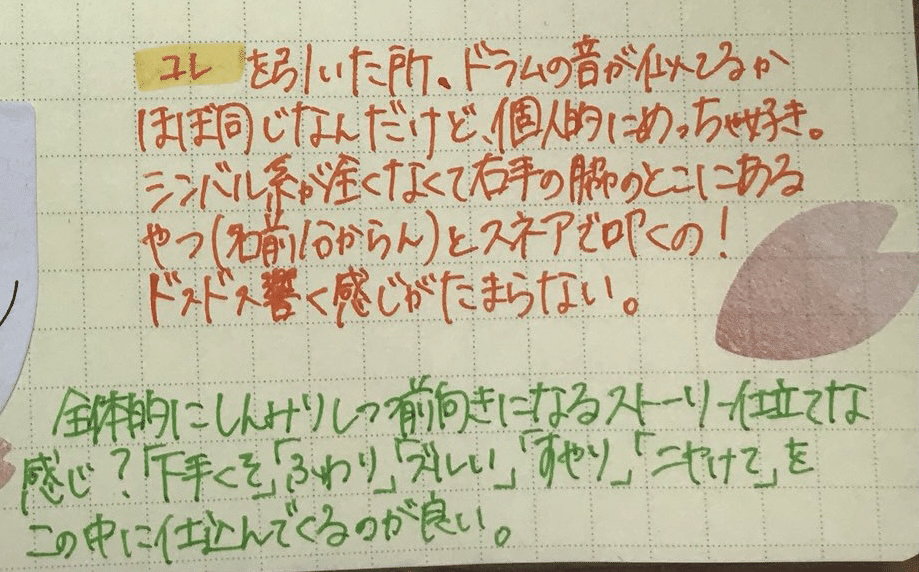 ユレ を引いた所、ドラムの音が似てるか
ほぼ同じなんだけど、個人的にめっちゃ好き。
シンバル系が全くなくて右手の脇のとこにある
やつ(名前分からん)とスネアで叩くの!
ドスドス響く感じがたまらない。
全体的にしんみりしつつ前向きになるストーリー仕立てな
感じ?「下手くそ」「ふわり」「ズルい」「すやり」「ニヤけて」を
この中に仕込んでくるのが良い。